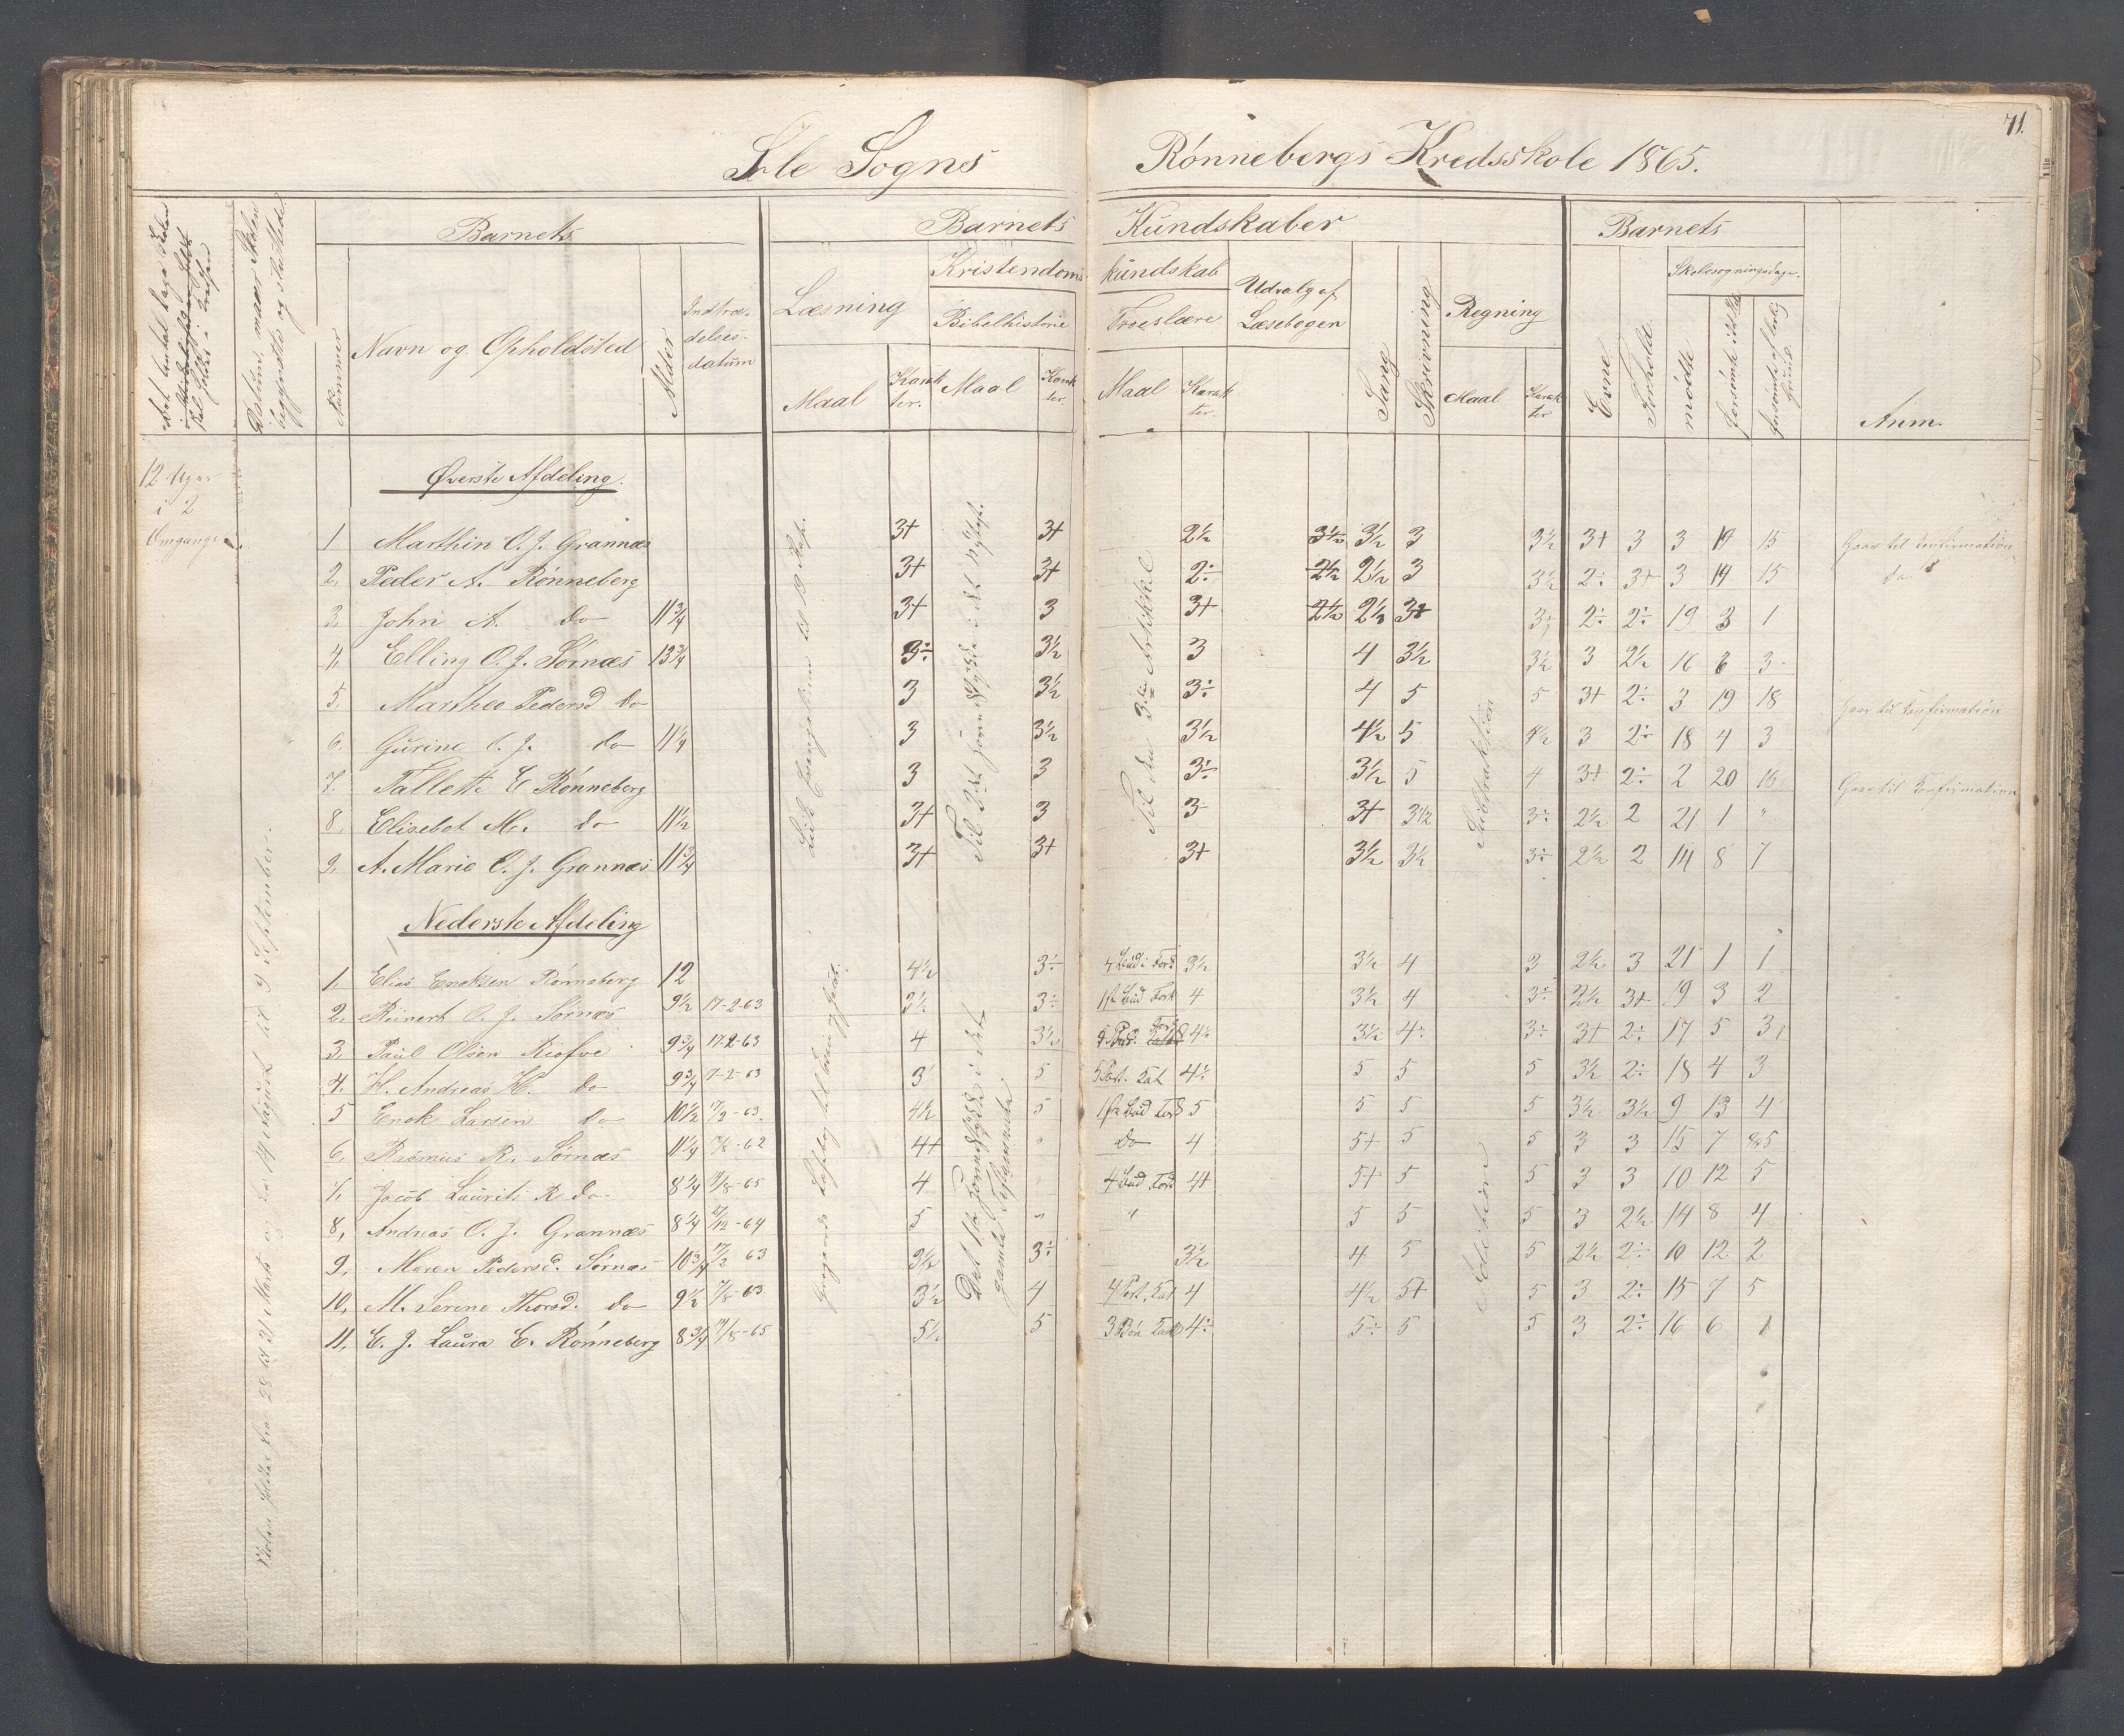 71.
Sole Sogns Rønnebergs Kredsskole 1865.
Barnets
Barnets Kundskaber
Barnets
Datum, naar Skolen begyndte og sluttede
Nummer
Navn og Opholdsted
Alder
Indtræ-
delses-
datum
Læsning
Maal
Karak
ter.
Kristendoms
kundskab
Bibelhistorie
Maal
Karak
ter.
Troeslære
Maal
Karak
ter.
Udvalg af
Læsebogen
Sang
Skrivning
Regning
Maal
Karak
ter
Evne
Forhold
Skolesøgningsdage.
mødte
forsømte af lovlig Grund
Anm.
12 Uger
i 2
Omgange.
Øverste Afdeling.
1 Marthin O. J. Grannæs 3+ 3+ 2½ 3½ 3½ 3 3½ 3+ 3 3 19 15 Gaar til Konfirmation
2, Peder A. Rønneberg 3+ 3+ 2÷ 2½ 2½ 3 3½ 2÷ 3+ 3 19 15 do
3, John A. do 11¾ 3+ 3 3+ 2½ 2½ 3+ 3+ 2÷ 2÷ 19 3 1
4, Elling O. J. Sørnæs 13¾ 3÷ 3½ 3 4 3½ 3½ 3 2½ 16 6 3
5, Marthe Pedersd do 3 3½ 3÷ 4 5 5 3+ 2÷ 3 19 18 Gaar til Konfirmation
6. Gurine O. J. do 11¼ 3 3½ 3½ 4½ 5 4½ 3 2÷ 18 4 3
7. Tallette E Rønneberg 3 3 3÷ 3½ 5 4 3+ 2÷ 2 20 16 Gaar til Konfirmation
8, Elisebet M. do 11½ 3+ 3 3 3+ 3½ 3÷ 2½ 2 21 1 "
9, A. Marie O. J. Grannæs 11¾ 3+ 3+ 3+ 3½ 3½ 3÷ 2½ 2 14 8 7
Subtraktion
Nederste Afdeling
1, Elias Enoksen Rønneberg 12 4½ 3÷ 4 Bud i Fork 3½ 3½ 4 3 2½ 3 21 1 1
2, Reinert O. J. Sørnæs 9½ 17-2-63 3½ 3÷ 1ste Bud Fork 4 3½ 4 3÷ 2½ 3+ 19 3 2
3, Paul Olsen Risfoe 9¾ 17-2-63 4 3½ 4÷ 3½ 4÷ 3÷ 3+ 2÷ 17 5 3
4. H. Andreas H. do 9¾ 7-2-63 3 5 5 Part. Kat 4÷ 5 5 5 3½ 2÷ 18 4 3
5 Enok Larsen do 10½ 17/2-63. 4½ 5 1ste Bud Fork 5 5 5 5 3½ 3½ 9 13 4
6, Rasmus R. Sørnæs 11¼ 17/8-62 4+ " do 4 5+ 5 5 3 3 15 7 5
7. Jacob Laurits R do 8¾ 17/8-65 4 4 Bud Fork 4+ 5+ 5 5 3 3 10 12 5
8, Andreas O. J. Grannæs 8¼ 21/12-64 5 " " 5 5 5 3 2½ 14 8 4
9, Maren Pedersd. Sørnæs 10¾ 17/2 63 3½ 3÷ 3½ 4 5 5 2½ 2÷ 10 12 2
10, M. Serine Thorsd. do 9½ 17/8-63 3½ 4 4 Part. Kat 4 4½ 5+ 5 3 2÷ 15 7 5
11, E. J. Laura E. Rønneberg 8¾ 17/8-65 5½ 5 3 Bøn Kat 4÷ 5÷ 5 5 3 2÷ 16 6 1
Addition